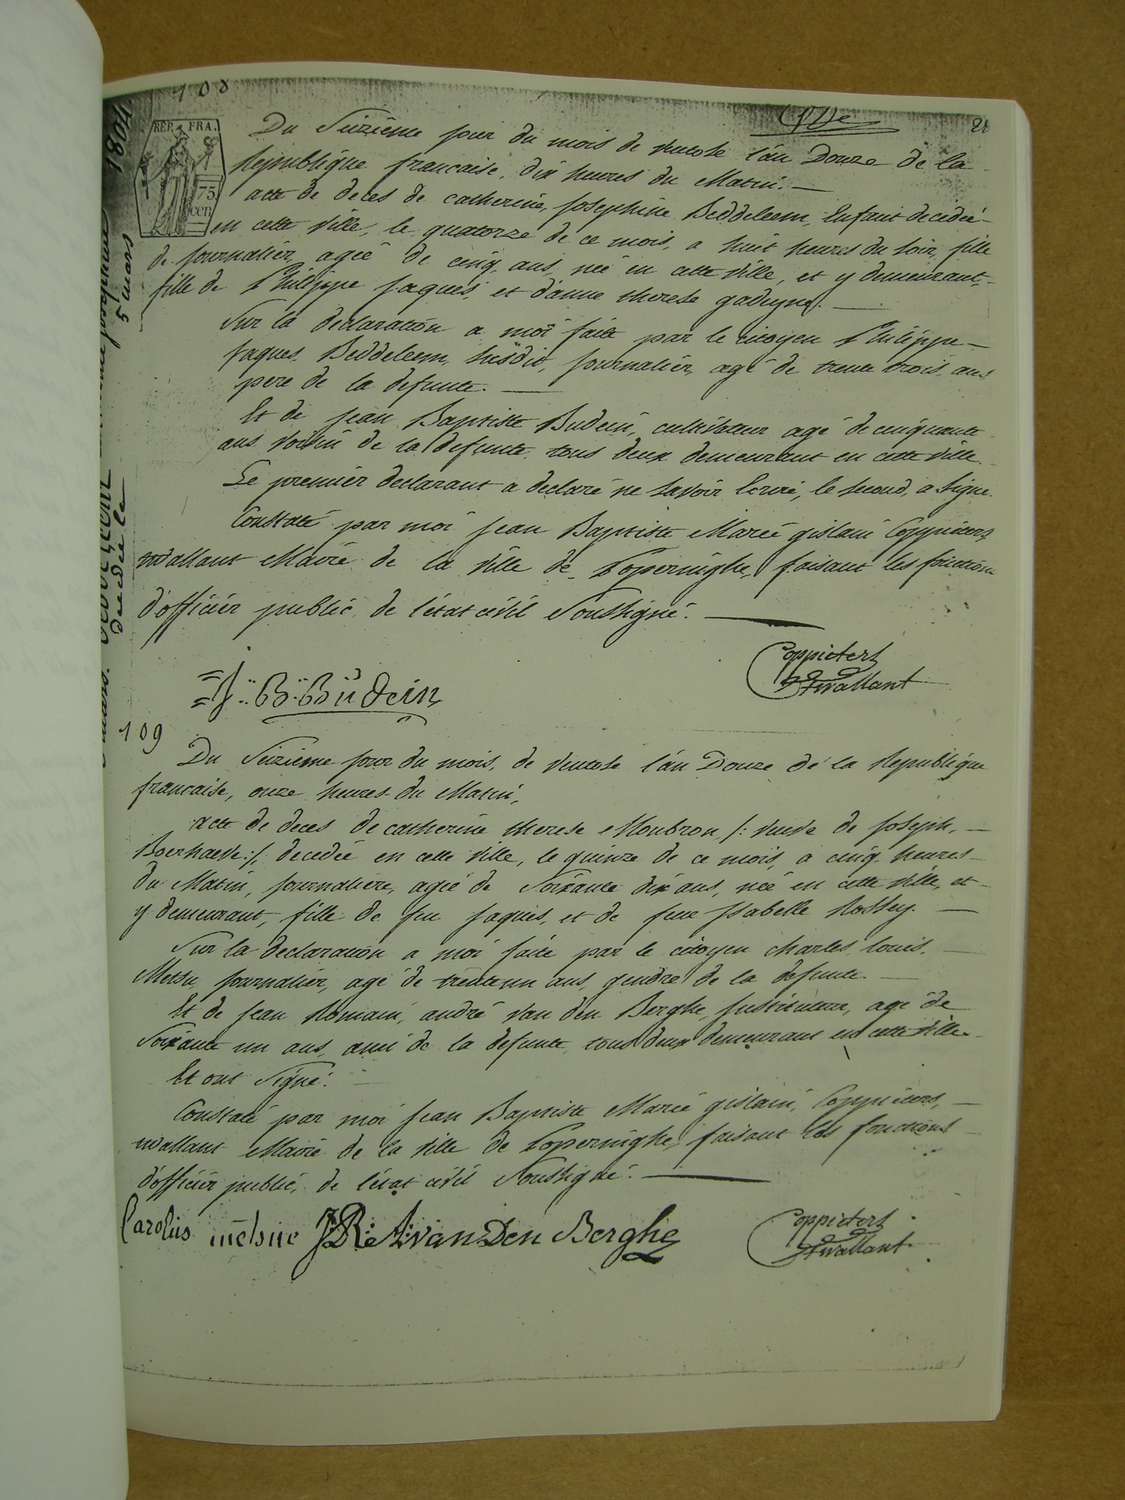 108
21
1804
5 mars
REP. FRA.
75
cen
Du Seizieme jour du mois de ventose l'an Douze de la
Republique francaise, dix heures du Matin. —
acte de deces de catherine, josephine Beddeleem, Enfant decedée
en cette ville, le quatorze de ce mois, a huit heures du soir, fille
de journalier, agée de cinq ans, née en cette ville, et y demeurant,
fille de Philippe jaques, et d'anne therese —
Sur la declaration a moi faite par le citoyen Philippe —
jaques Beddeleem, susdit, journalier, agé de trente trois ans
pere de la defunte. —
Et de jean Baptiste Budein, cultivateur agé de cinquante
ans voisin de la defunte, tous deux demeurant en cette ville
Le premier declarant a declaré ne savoir Ecrire, le second, a signé
Constaté par moi jean Baptiste Marie gislain Coppieters
wallant Maire de la ville de Poperinghe, faisant les fonctions
d'officier public de l'etat civil Soussigné. —
Coppieters
Stwallant
J: B: Budein
decedée le
109
Du Seizieme jour du mois, de ventose l'an Douze de la Republique
francaise, onze heures du Matin,
acte de deces de catherine therese Monbron, /: veuve de joseph, —
Boerhaeve :/, decedée en cette ville, le quinze de ce mois, a cinq heures
du Matin, journaliere, agée de Soixante dix ans, née en cette ville, et
y demeurant, fille de feu jaques, et de feue Isabelle Rossey. —
Sur la declaration a moi faite par le citoyen charles louis, —
Messu, journalier, agé de trente un ans, gendre de la defunte. —
Et de jean Romain, andré van den Berghe, agé de
Soixante un ans, ami de la defunte, tous deux demeurant en cette ville
Et ont Signé. —
Constaté par moi jean Baptiste Marie gislain, Coppieters, —
wallant Maire de la ville de Poperinghe, faisant les fonctions
d'officier public, de l'etat civil Soussigné. —
Carolus J: R: A: van Den Berghe
Coppieters
Stwallant